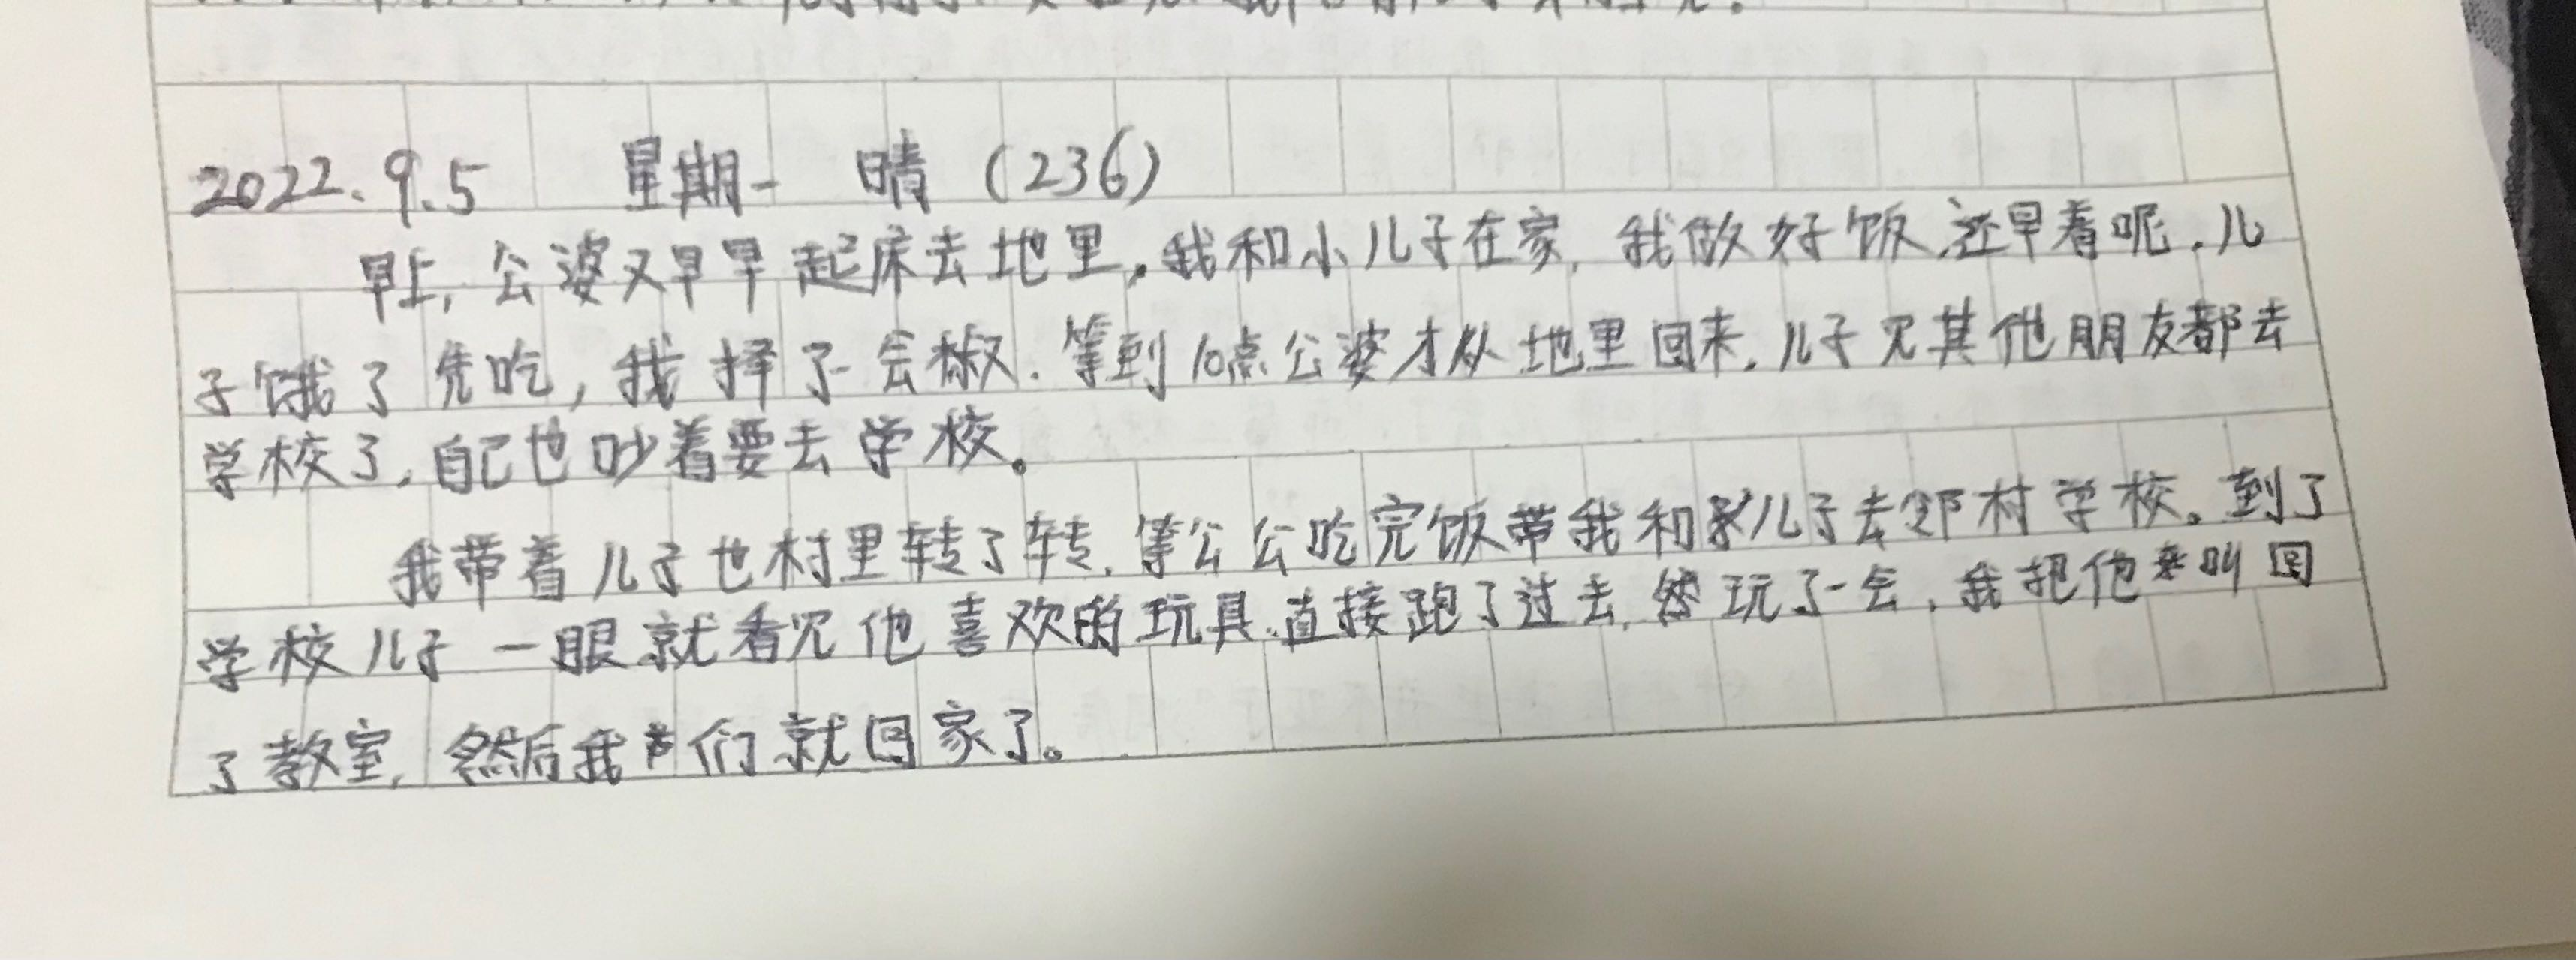 2022.9.5 星期一 晴（236）
早上，公婆又早早起床去地里。我和小儿子在家，我做好饭还早着呢，儿
子饿了先吃，我择了一会椒．等到10点公婆才从地里回来，儿子见其他朋友都去
学校了，自己也吵着要去学校。
我带着儿子也村里转了转，等公公吃完饭带我和儿子去邻村学校。到了
学校儿子一眼就看见他喜欢的玩具，直接跑了过去，玩了一会，我把他叫回
了教室，然后我们就回家了。